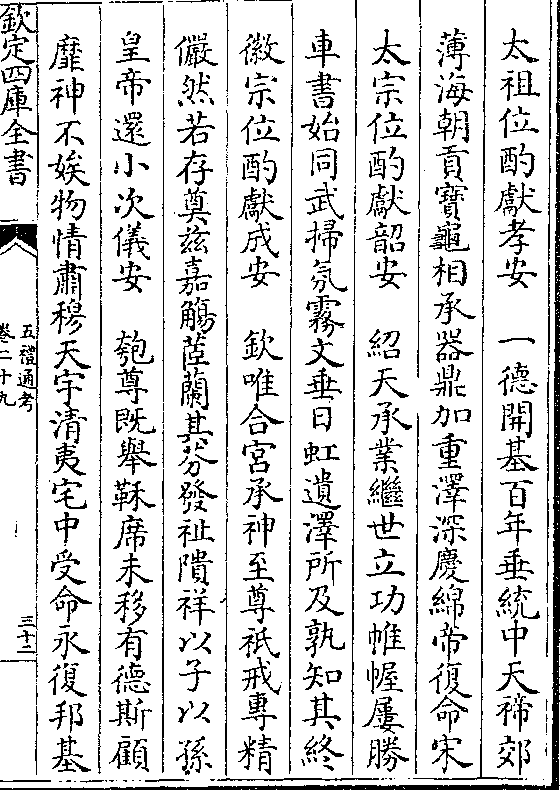 太祖位酌獻孝安　一德開基百年垂統中天禘郊
薄海朝貢寶龜相承器鼎加重澤深慶綿帝復命宋
太宗位酌獻韶安　紹天承業繼世立功帷幄屢勝
車書始同武掃氛霧文垂日虹遺澤所及孰知其終
徽宗位酌獻成安　欽唯合宮承神至尊祇戒專精
儼然若存奠兹嘉觴苾蘭其芬發祉隤祥以子以孫
皇帝還小次儀安　匏尊既舉靺席未移有德斯顧
靡神不娭物情肅穆天宇清夷宅中受命永復邦基
欽定四庫全書
五禮通考
卷二十九
三十二